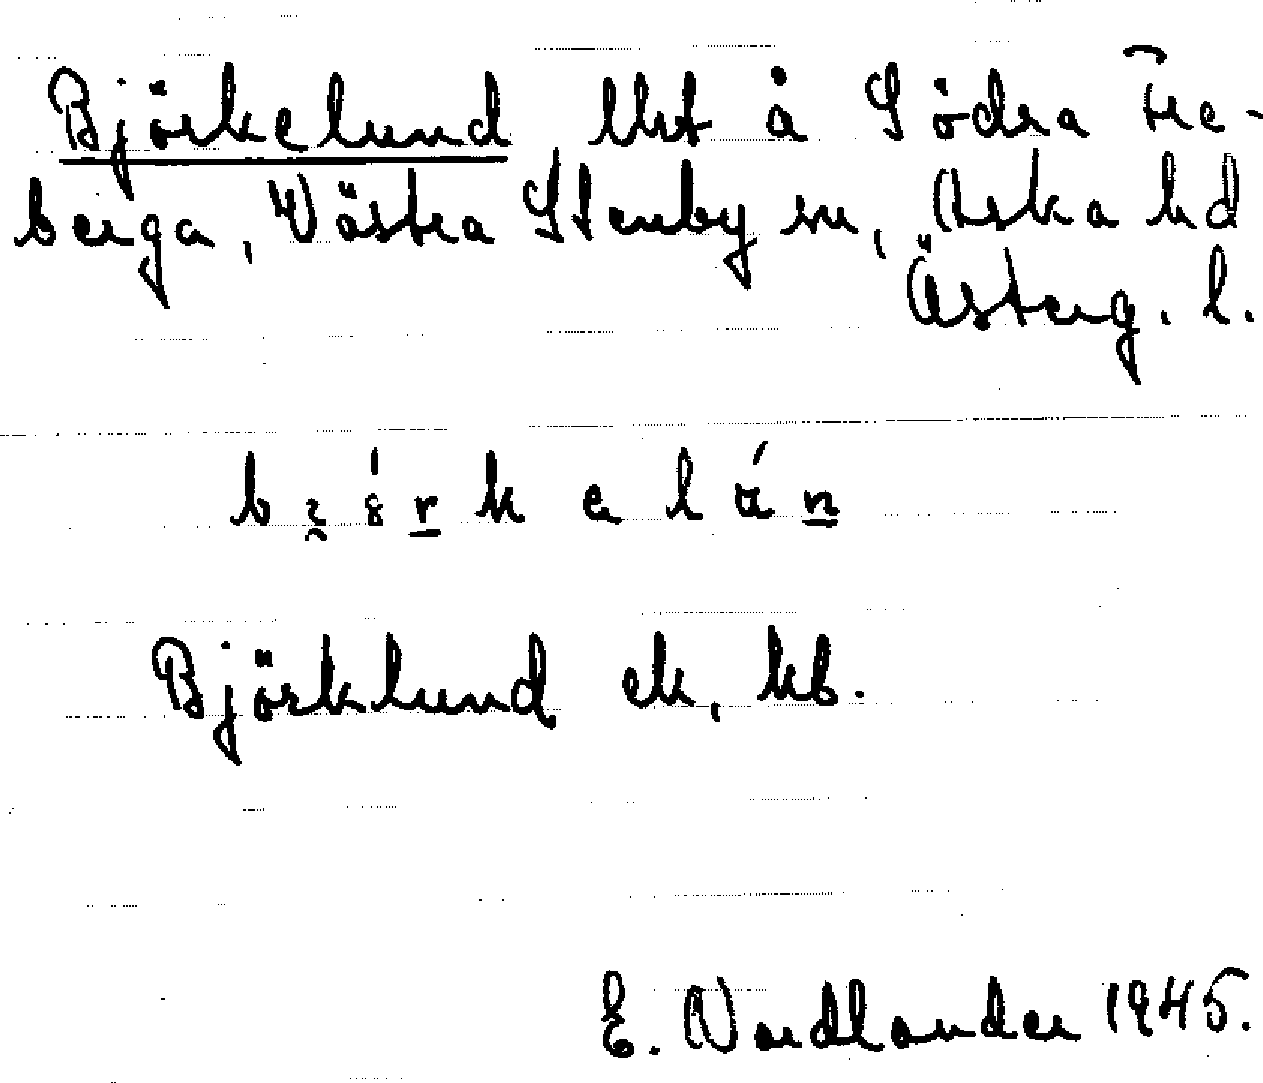 Björkelund lht å Södra Fre-
berga, Västra Stenby sn, Aska hd
Österg. l.
Björklund ek, kb.
E. Nordlander 1945.